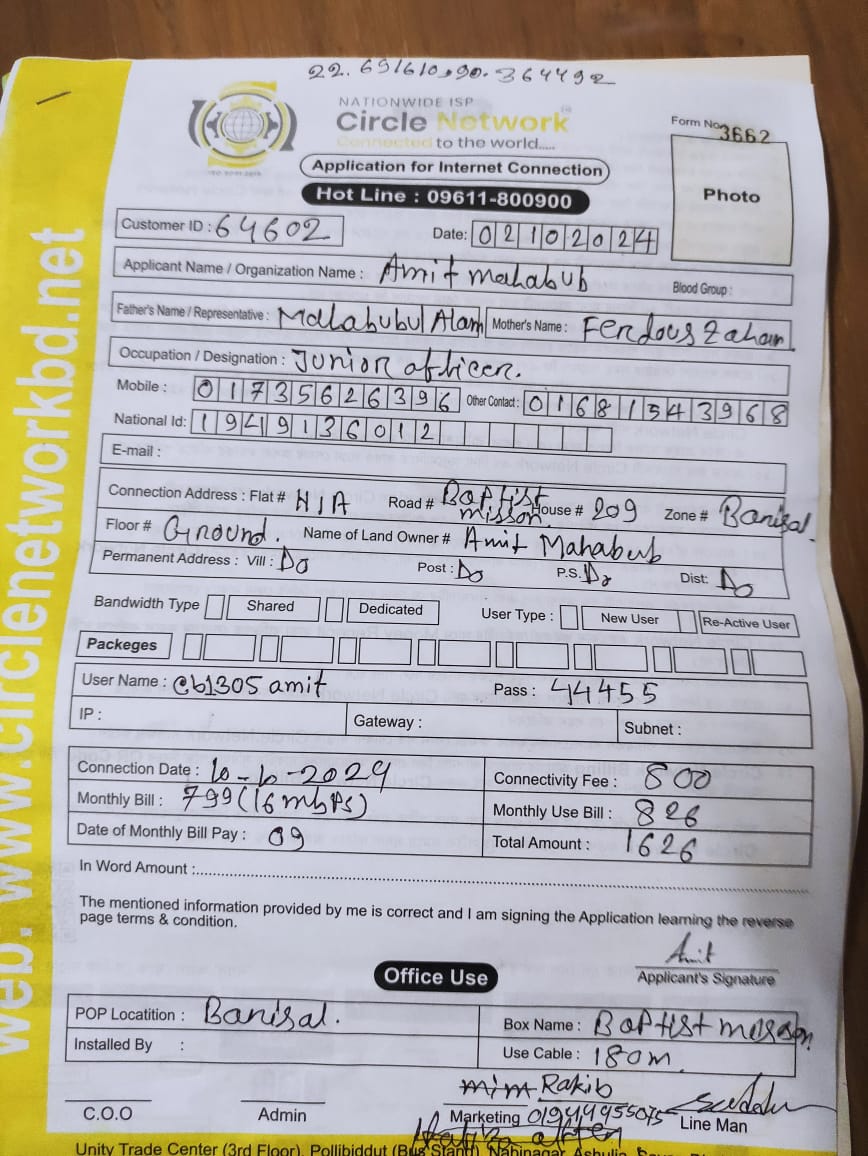 22.691610,90.364492
NATIONWIDE ISP
Circle Network
Connected to the world.....
Form No. 3662
Application for Internet Connection
Photo
Hot Line : 09611-800900
Customer ID : 64602
Date: 02102024
Applicant Name / Organization Name : Amit mahabub
Blood Group :
Father's Name / Representative : Mahabubul Alam Mother's Name : Ferdous Zahan
Occupation / Designation : Junior officer.
Mobile : 01735626396 Other Contact : 01681543968
National Id: 1949136012
E-mail :
Connection Address : Flat # N/A Road # Baptist misson House # 209 Zone # Barisal
Floor # Ground. Name of Land Owner # Amit Mahabub
Permanent Address : Vill : Do Post : Do P.S. Do Dist: Do
Bandwidth Type Shared Dedicated User Type : New User Re-Active User
Packeges
User Name : cb1305amit Pass : 44455
IP : Gateway : Subnet :
Connection Date : 10-10-2024 Connectivity Fee : 800
Monthly Bill : 799(16mbps) Monthly Use Bill : 826
Date of Monthly Bill Pay : 09 Total Amount : 1626
In Word Amount :
The mentioned information provided by me is correct and I am signing the Application learning the reverse
page terms & condition.
Amit
Applicant's Signature
Office Use
POP Locatition : Barisal. Box Name : Baptist misson
Installed By : Use Cable : 180m
mim Rakib
C.O.O Admin Marketing 01944955075 Line Man
Unity Trade Center (3rd Floor), Pollibiddut (Bus Stand), Nabinagar, Ashulia,
web: www.circlenetworkbd.net